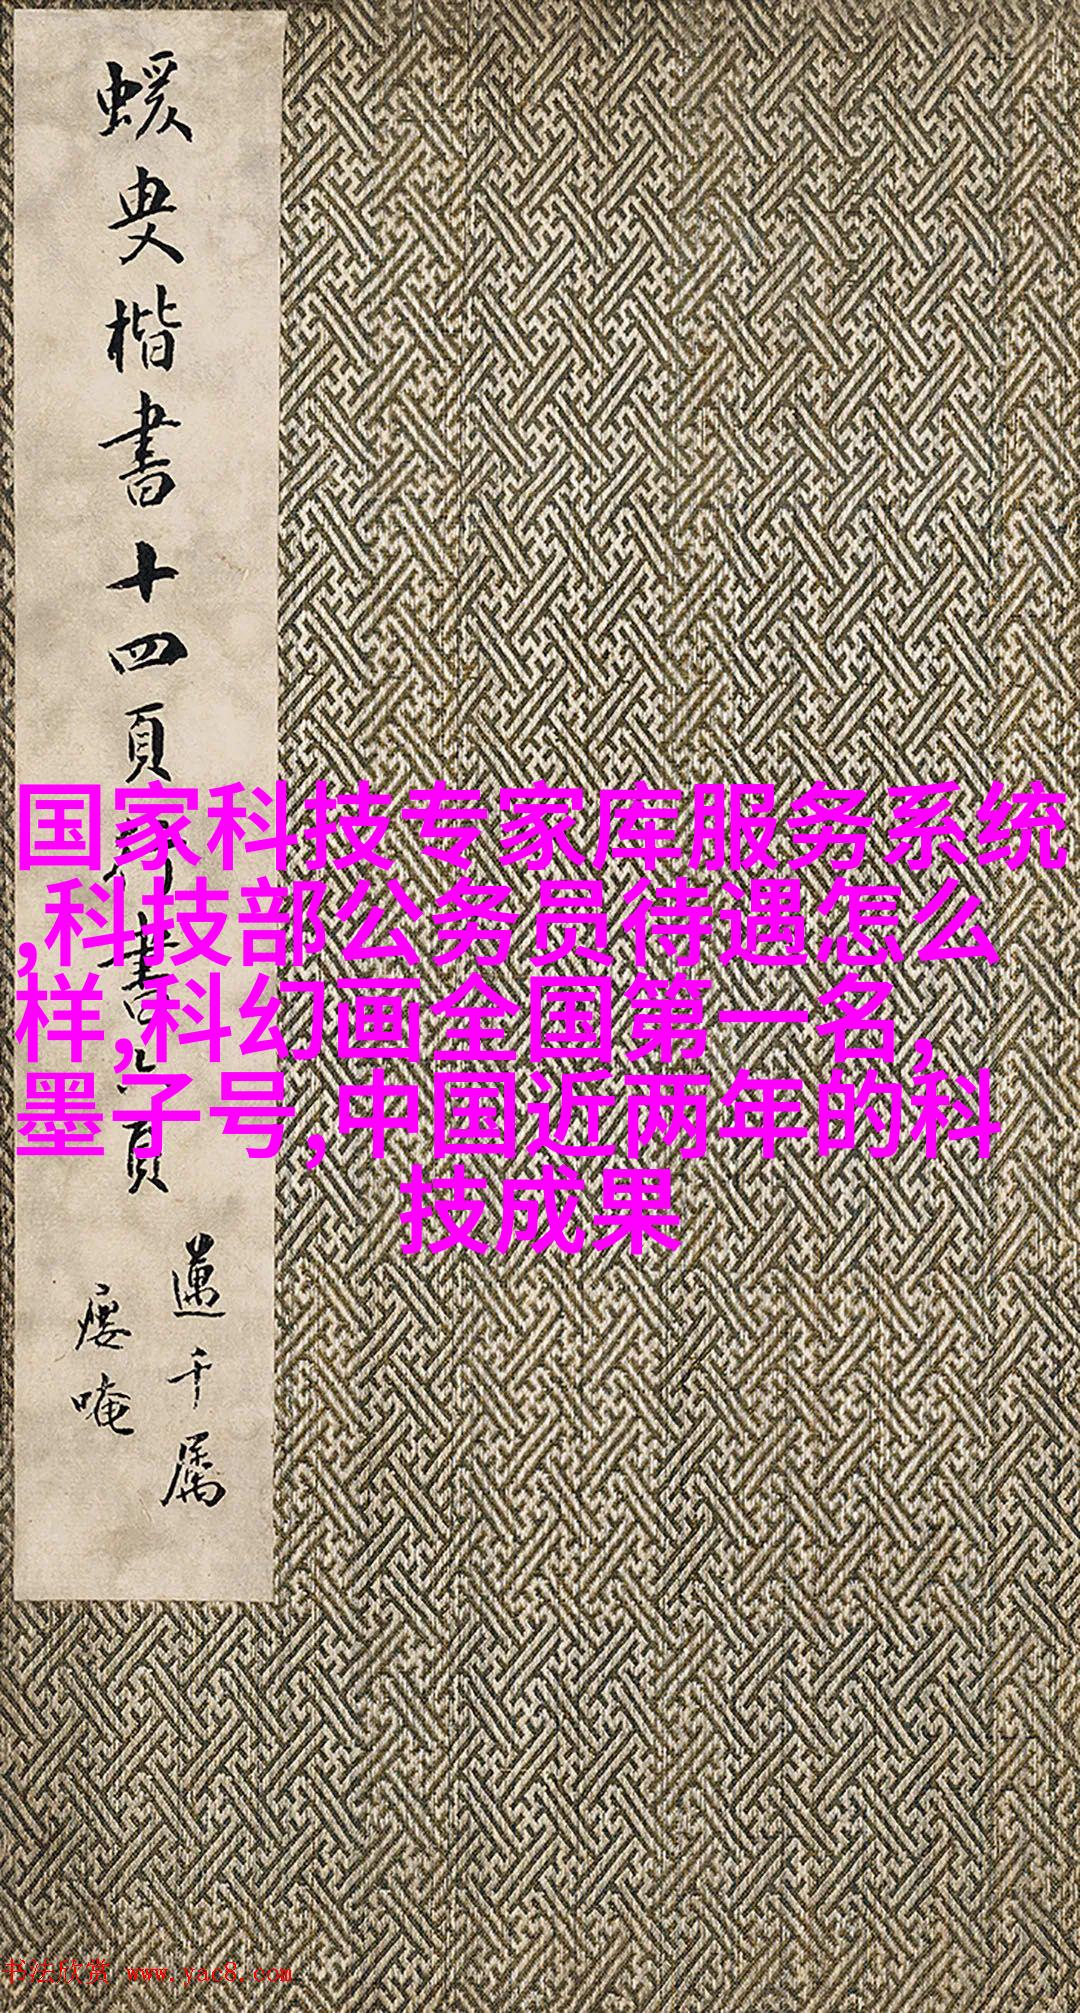 蝯叟楷書十四頁行書頁
千屬
国家科技专家库服务系统
,科技部公务员待遇怎么
样,科幻画全国第一名,
墨子号,中国近两年的科
技成果
书法欣赏 www.yac8.com